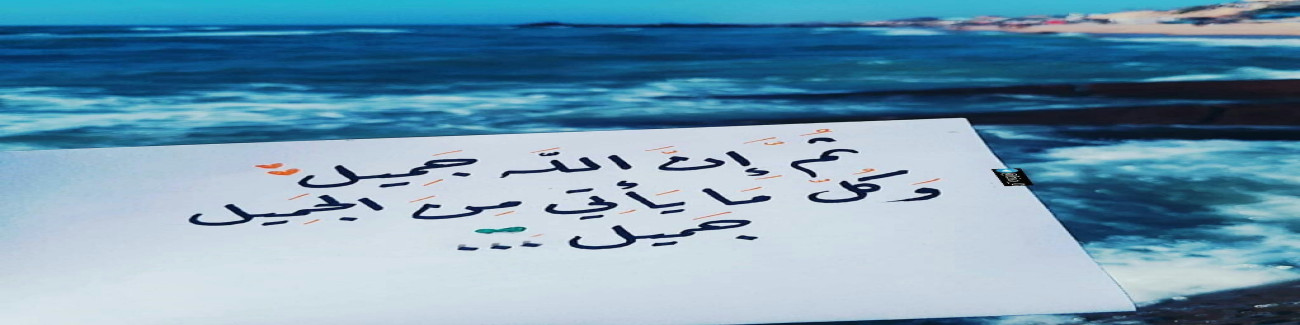 ثُمَّ إِنَّ اللَّه جَمِيل
وَكُلُّ مَا يَأَتي مِنَ الجَمَيل
جَمَيل ...